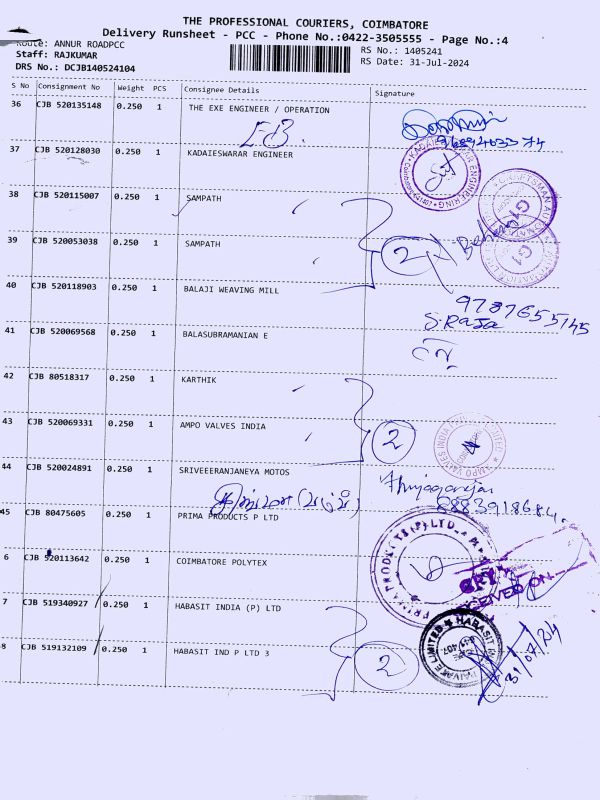 THE PROFESSIONAL COURIERS, COIMBATORE
Delivery Runsheet - PCC - Phone No.:0422-3505555 - Page No.:4
Route: ANNUR ROADPCC
Staff: RAJKUMAR
DRS No.: DCJB140524104
RS No.: 1405241
RS Date: 31-Jul-2024
S No Consignment No Weight PCS Consignee Details Signature
36 CJB 520135148 0.250 1 THE EXE ENGINEER / OPERATION
EB.
37 CJB 520128030 0.250 1 KADAIESWARAR ENGINEER
38 CJB 520115007 0.250 1 SAMPATH
39 CJB 520053038 0.250 1 SAMPATH
2
40 CJB 520118903 0.250 1 BALAJI WEAVING MILL
9787655145
S.RAJA
41 CJB 520069568 0.250 1 BALASUBRAMANIAN E
42 CJB 80518317 0.250 1 KARTHIK
43 CJB 520069331 0.250 1 AMPO VALVES INDIA
2
44 CJB 520024891 0.250 1 SRIVEEERANJANEYA MOTOS
8883918684.
45 CJB 80475605 0.250 1 PRIMA PRODUCTS P LTD
PRIMA PRODUCTS (P) LTD.
6 CJB 520113642 0.250 1 COIMBATORE POLYTEX
7 CJB 519340927 0.250 1 HABASIT INDIA (P) LTD
8 CJB 519132109 0.250 1 HABASIT IND P LTD 3
2
31/07/24